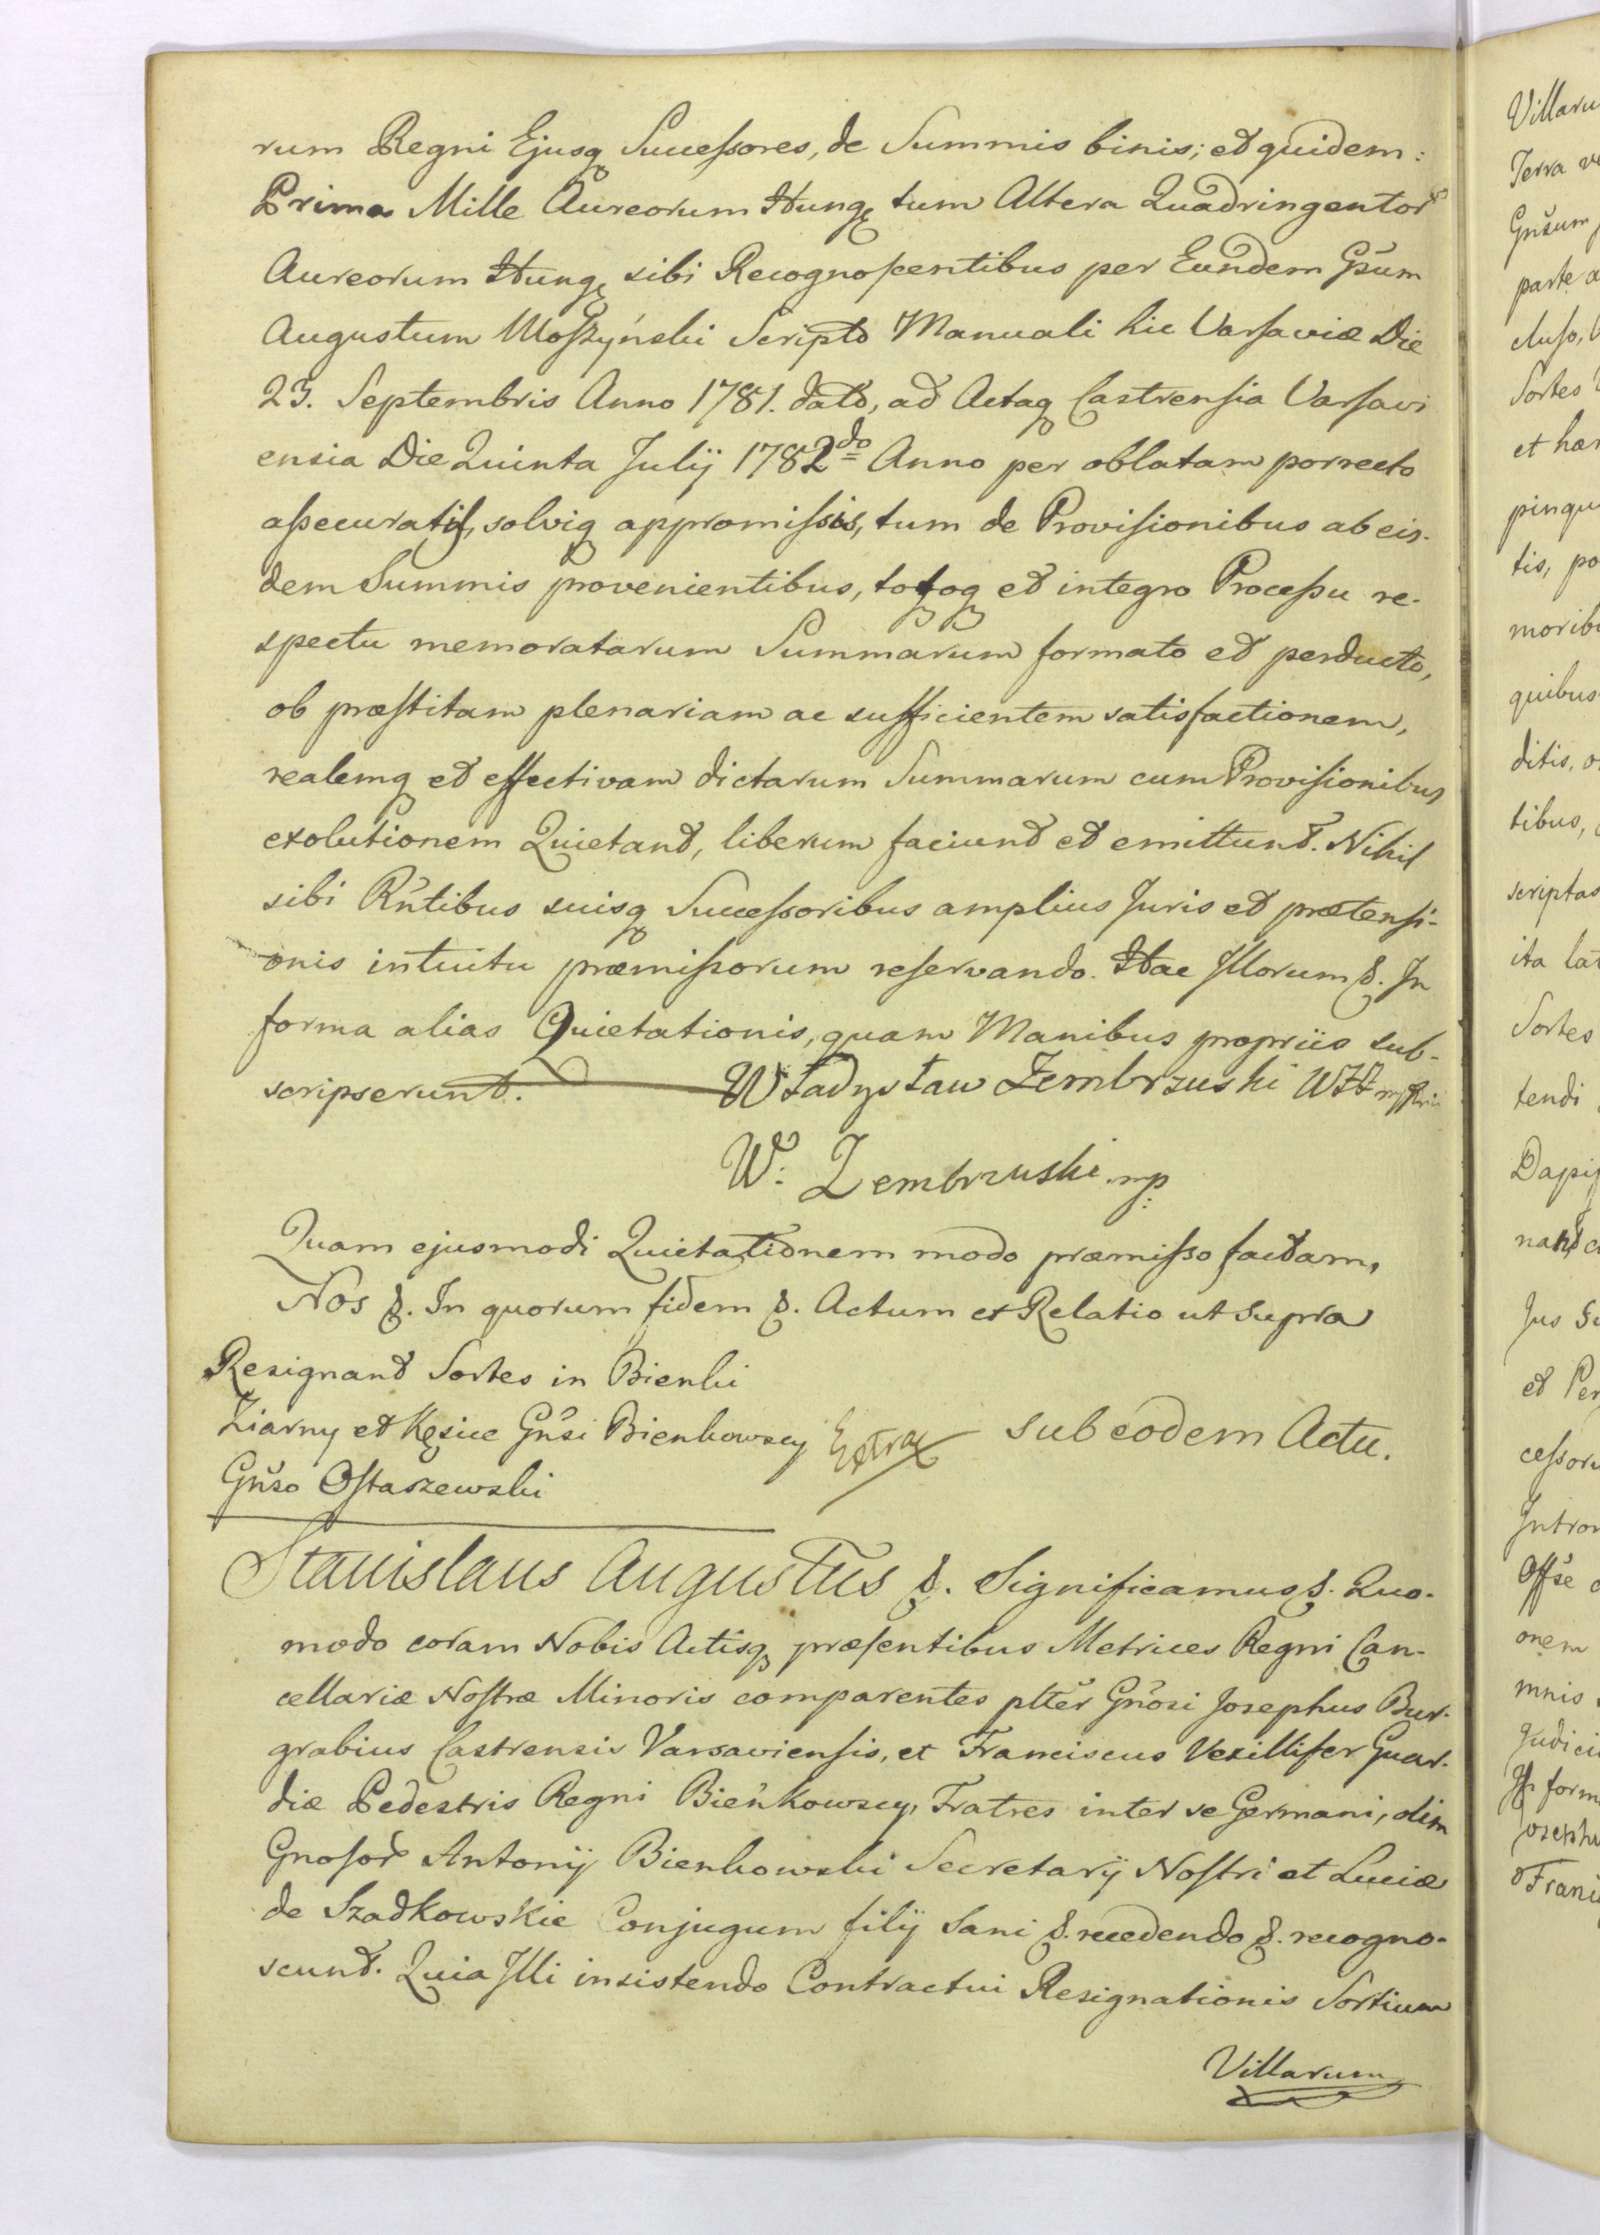 rum Regni Ejusq Successores, de Summis binis; et quidem:
Prima Mille Aureorum Hung, tum Altera Quadringentor
Aureorum Hung, sibi Recognoscentibus per Eundem Gsum
Augustum Moszyński Scripto Manuali hic Varsaviæ Die
23. Septembris Anno 1781. dato, ad Actaq Castrensia Varsavi
ensia Die Quinta Julij 1782do Anno per oblatam porrecto
assecuratis, solviq appromissis, tum de Provisionibus ab eis-
dem Summis provenientibus, totoq et integro Processu re-
spectu memoratarum Summarum formato et perducto,
ob præstitam plenariam ac sufficientem satisfactionem,
realemq et effectivam dictarum Summarum cum Provisionibus
exolutionem Quietant, liberum faciunt et emittunt. Nihil
sibi Rntibus suisq Successoribus amplius Juris et prætensi-
onis intuitu præmissorum reservando. Hac Illorum &. In
forma alias Quietationis, quam Manibus propriis sub-
scripserunt. Władysław Zembrzuski
W: Zembrzuski mp:
Quam ejusmodi Quietationem modo præmisso factam,
Nos &. In quorum fidem &. Actum et Relatio ut supra
Resignant Sortes in Bienki
Ziarny et Kęsice Gnsi Bienkowscy Extrax sub eodem Actu.
Gnso Ostaszewski
Stanislaus Augustus &. Significamus &. Quo-
modo coram Nobis Actisq præsentibus Metrices Regni Can-
cellariæ Nostræ Minoris comparentes plter Gnosi Josephus Bur-
grabius Castrensis Varsaviensis, et Franciscus Vexillifer Guar-
diæ Pedestris Regni Bieńkowscy, Fratres inter se Germani, olim
Gnosor Antonij Bienkowski Secretarij Nostri et Luciæ
de Szadkowskie Conjugum filij Sani &. recedendo &. recogno-
scunt. Quia Illi insistendo Contractui Resignationis Sortium
Villarum
Villaru
Terra
Gnsum
parte a
cluso,
Sortes
et hær
pinqu
tis, po
morib
quibus
ditis, o
tibus,
scriptas
ita lat
Sortes
tendi
Dapif
nant c
Jus
et Per
cessor
Intro
Offse
onem
mnis
Judici
form
Joseph
Franc